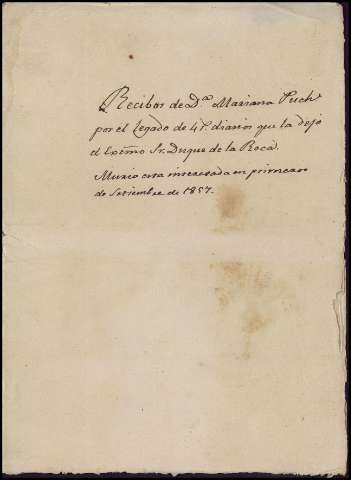 Recibos de D.ª Mariana Puch
por el Legado de 4 r.s diarios que la dejó
el Excmo Sr. Duque de la Roca.
Murió esta interesada en primero
de Setiembre de 1857.